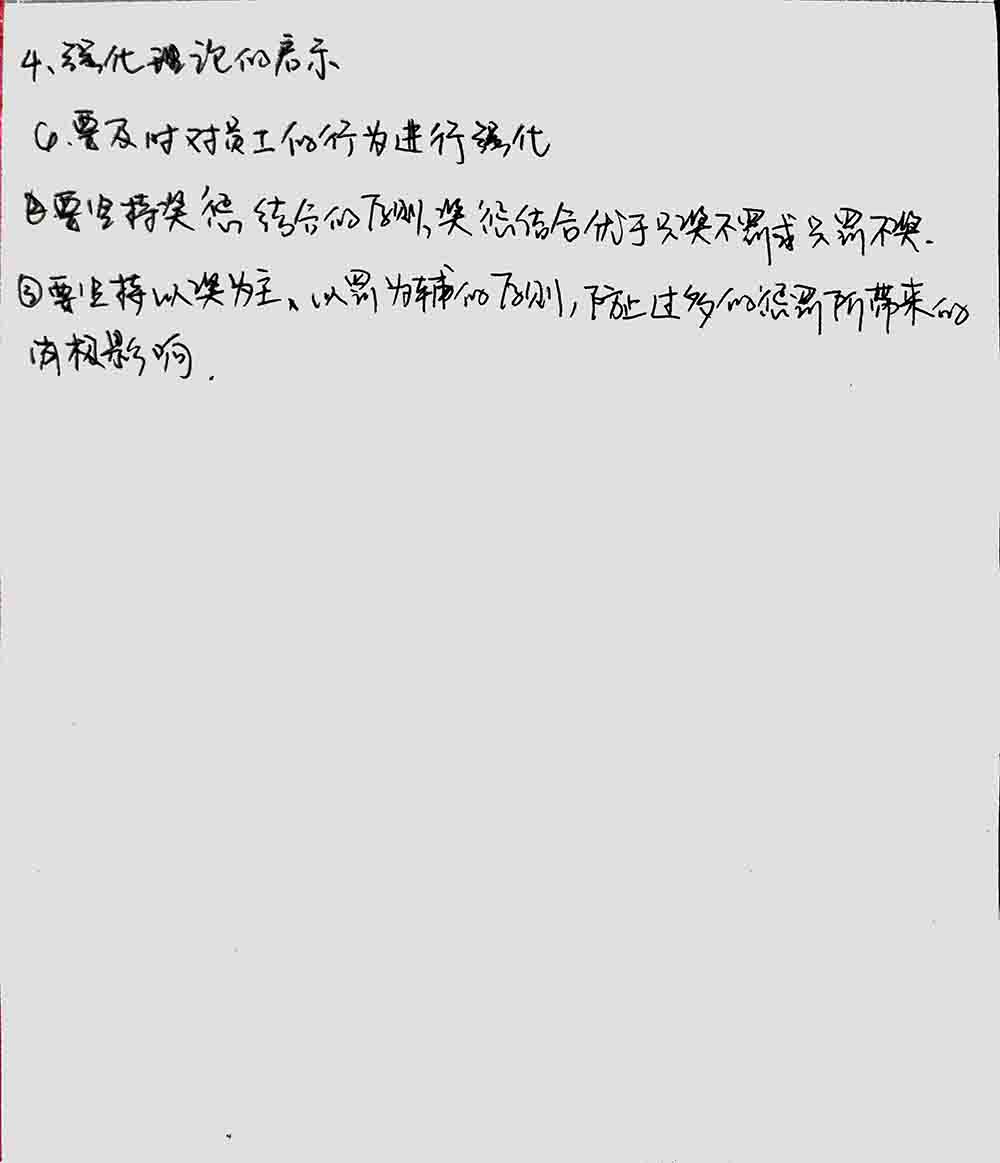 4、强化理论的启示
①.要及时对员工的行为进行强化
②要坚持奖惩结合的原则,奖惩结合优于只奖不罚或只罚不奖.
③要坚持以奖为主、以罚为辅的原则,防止过多的惩罚所带来的
消极影响.